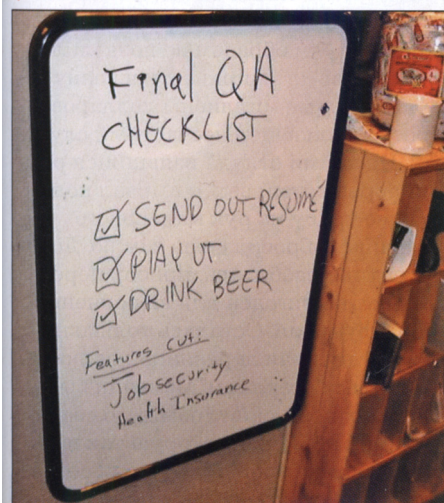 Final QA
CHECKLIST
☑ SEND OUT RESUMÉ
☑ PLAY UT
☑ DRINK BEER
Features cut:
Job security
Health Insurance